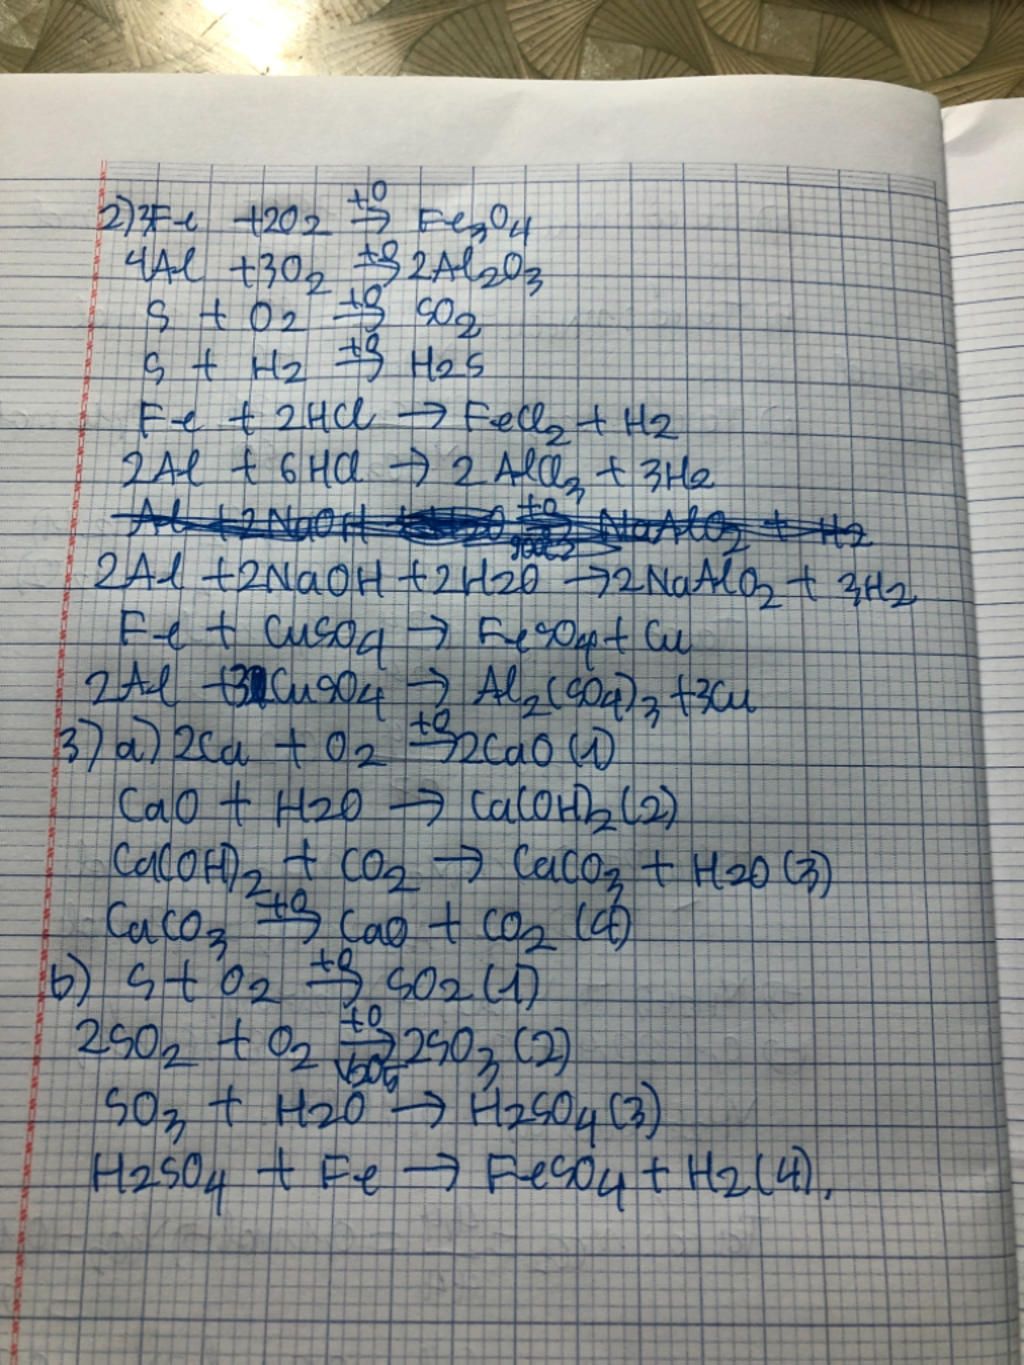 2) 3Fe + 2O2 t° → Fe3O4
4Al + 3O2 t° → 2Al2O3
S + O2 t° → SO2
S + H2 t° → H2S
Fe + 2HCl → FeCl2 + H2
2Al + 6HCl → 2AlCl3 + 3H2
Al + 2NaOH + H2O t° → NaAlO2 + H2
2Al + 2NaOH + 2H2O → 2NaAlO2 + 3H2
Fe + CuSO4 → FeSO4 + Cu
2Al + 3CuSO4 → Al2(SO4)3 + 3Cu
3) a) 2Ca + O2 t° → 2CaO (1)
CaO + H2O → Ca(OH)2 (2)
Ca(OH)2 + CO2 → CaCO3 + H2O (3)
CaCO3 t° → CaO + CO2 (4)
b) S + O2 t° → SO2 (1)
2SO2 + O2 t° → V2O5 2SO3 (2)
SO3 + H2O → H2SO4 (3)
H2SO4 + Fe → FeSO4 + H2 (4).